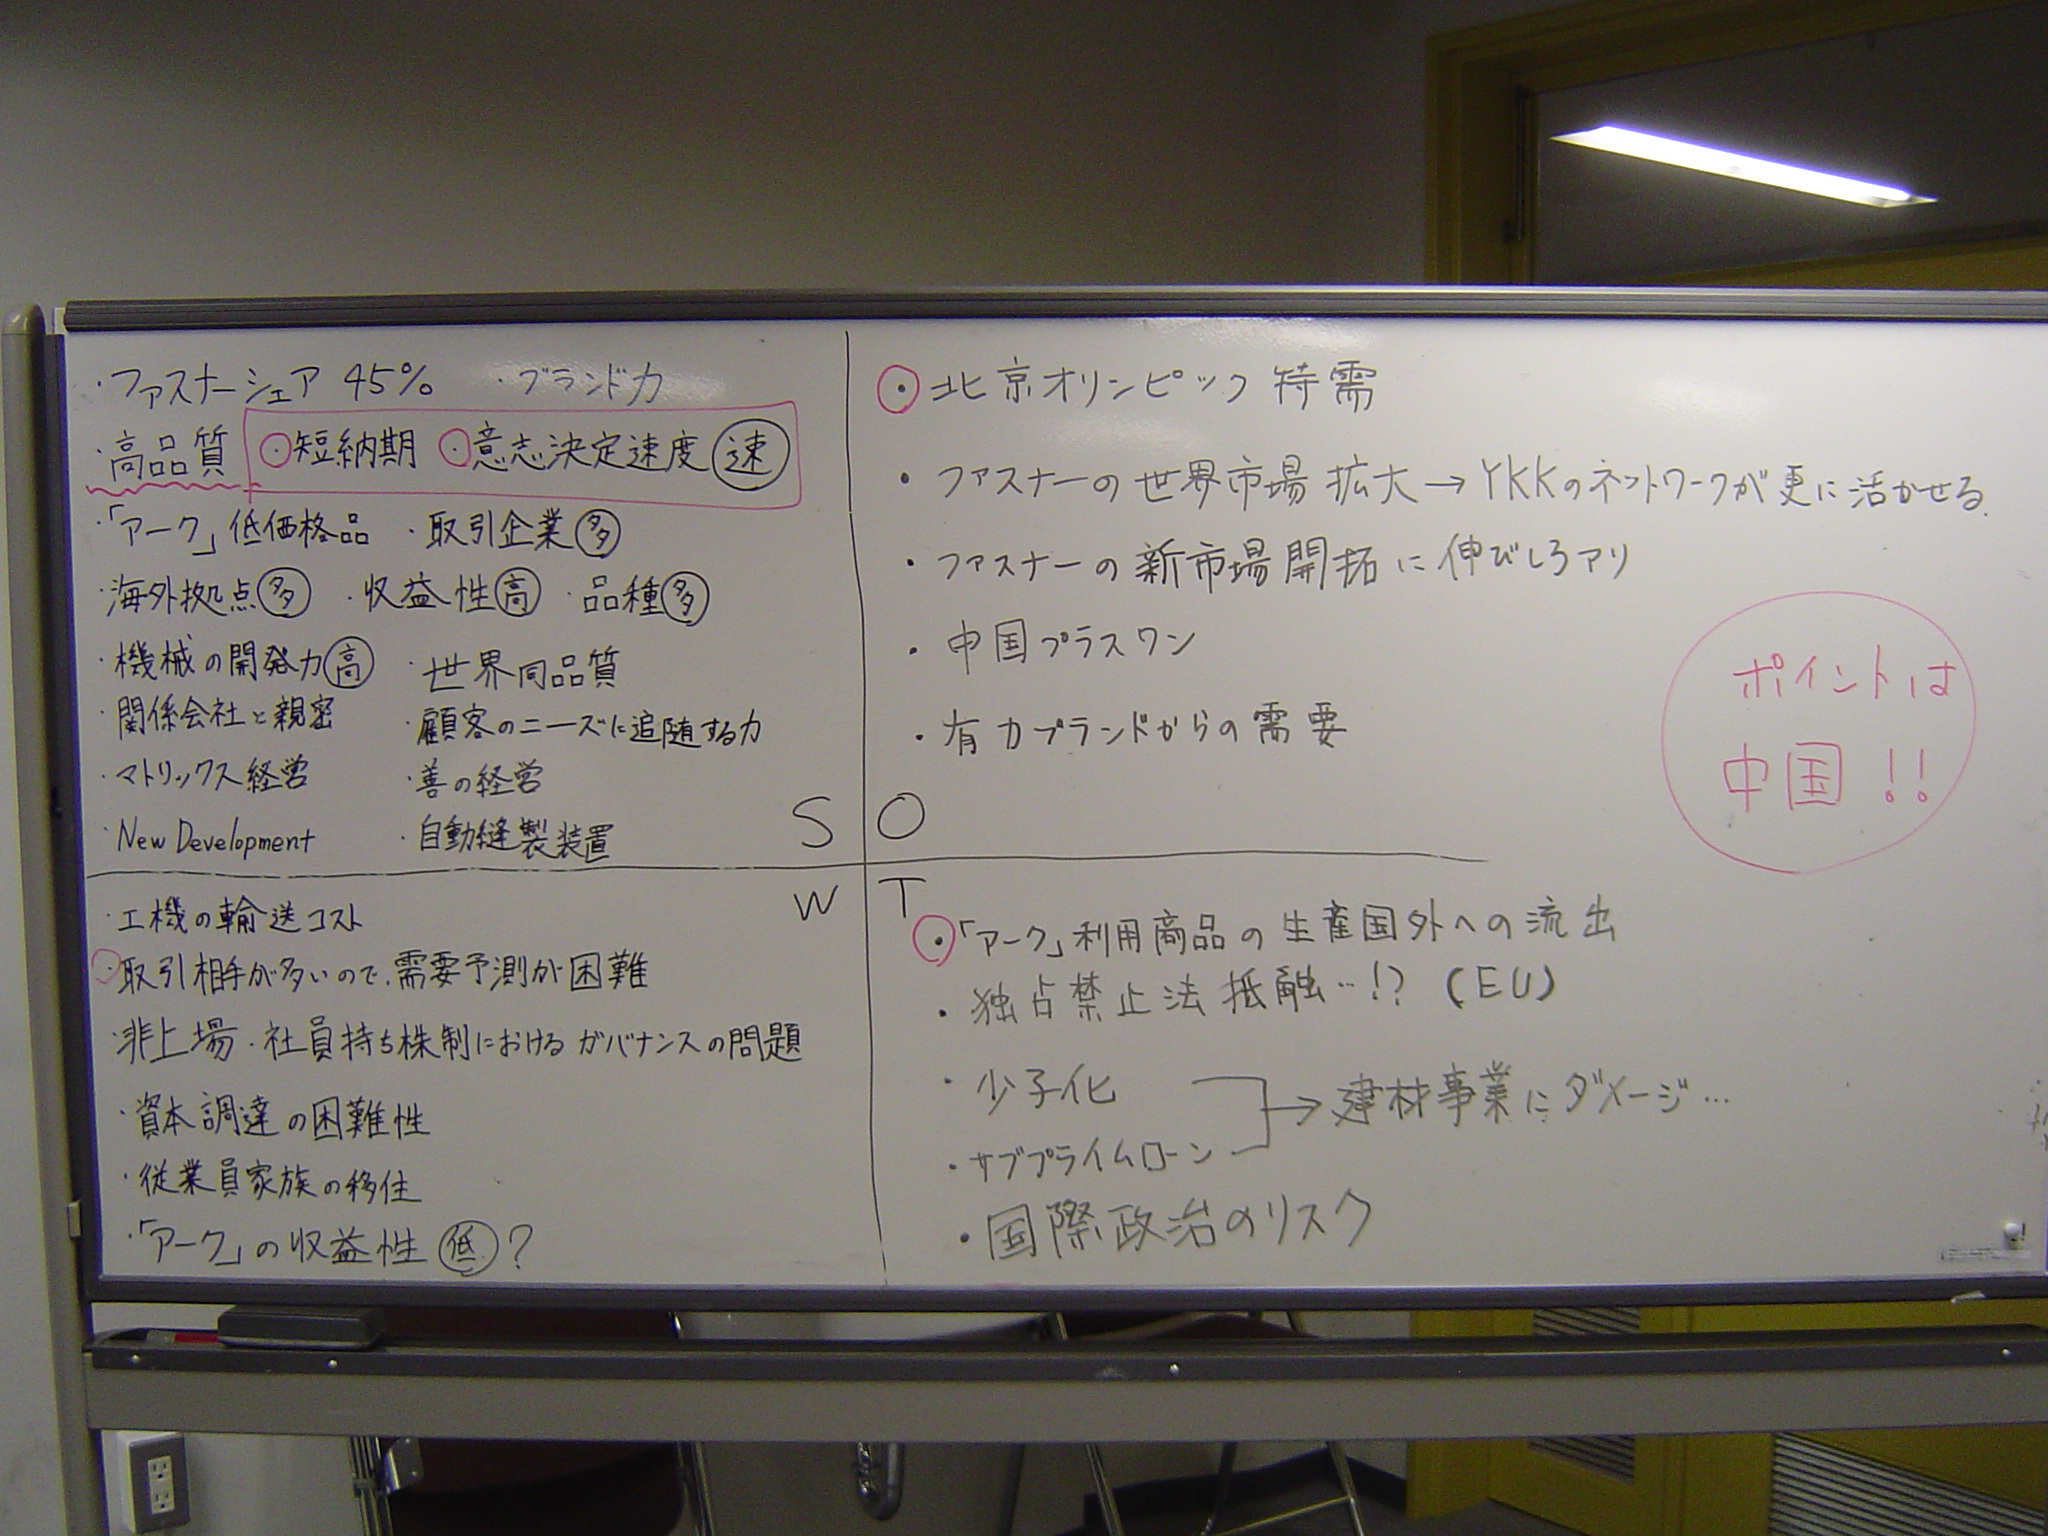 ・ファスナーシェア 45% ・ブランド力
・高品質 ・短納期 ・意志決定速度 速
・「アーク」低価格品 ・取引企業 多
・海外拠点 多 ・収益性 高 ・品種 多
・機械の開発力 高 ・世界同品質
・関係会社と親密 ・顧客のニーズに追随する力
・マトリックス経営 ・善の経営
・New Development ・自動縫製装置
S
・北京オリンピック 特需
・ファスナーの世界市場 拡大→YKKのネットワークが更に活かせる.
・ファスナーの新市場開拓に伸びしろアリ
・中国プラスワン
・有力ブランドからの需要
O
ポイントは
中国!!
W
・工機の輸送コスト
・取引相手が多いので、需要予測が困難
・非上場・社員持ち株制におけるガバナンスの問題
・資本調達の困難性
・従業員家族の移住
・「アーク」の収益性 低?
T
・「アーク」利用商品の生産国外への流出
・独占禁止法抵触…!? (EU)
・少子化
・サブプライムローン →建材事業にダメージ…
・国際政治のリスク